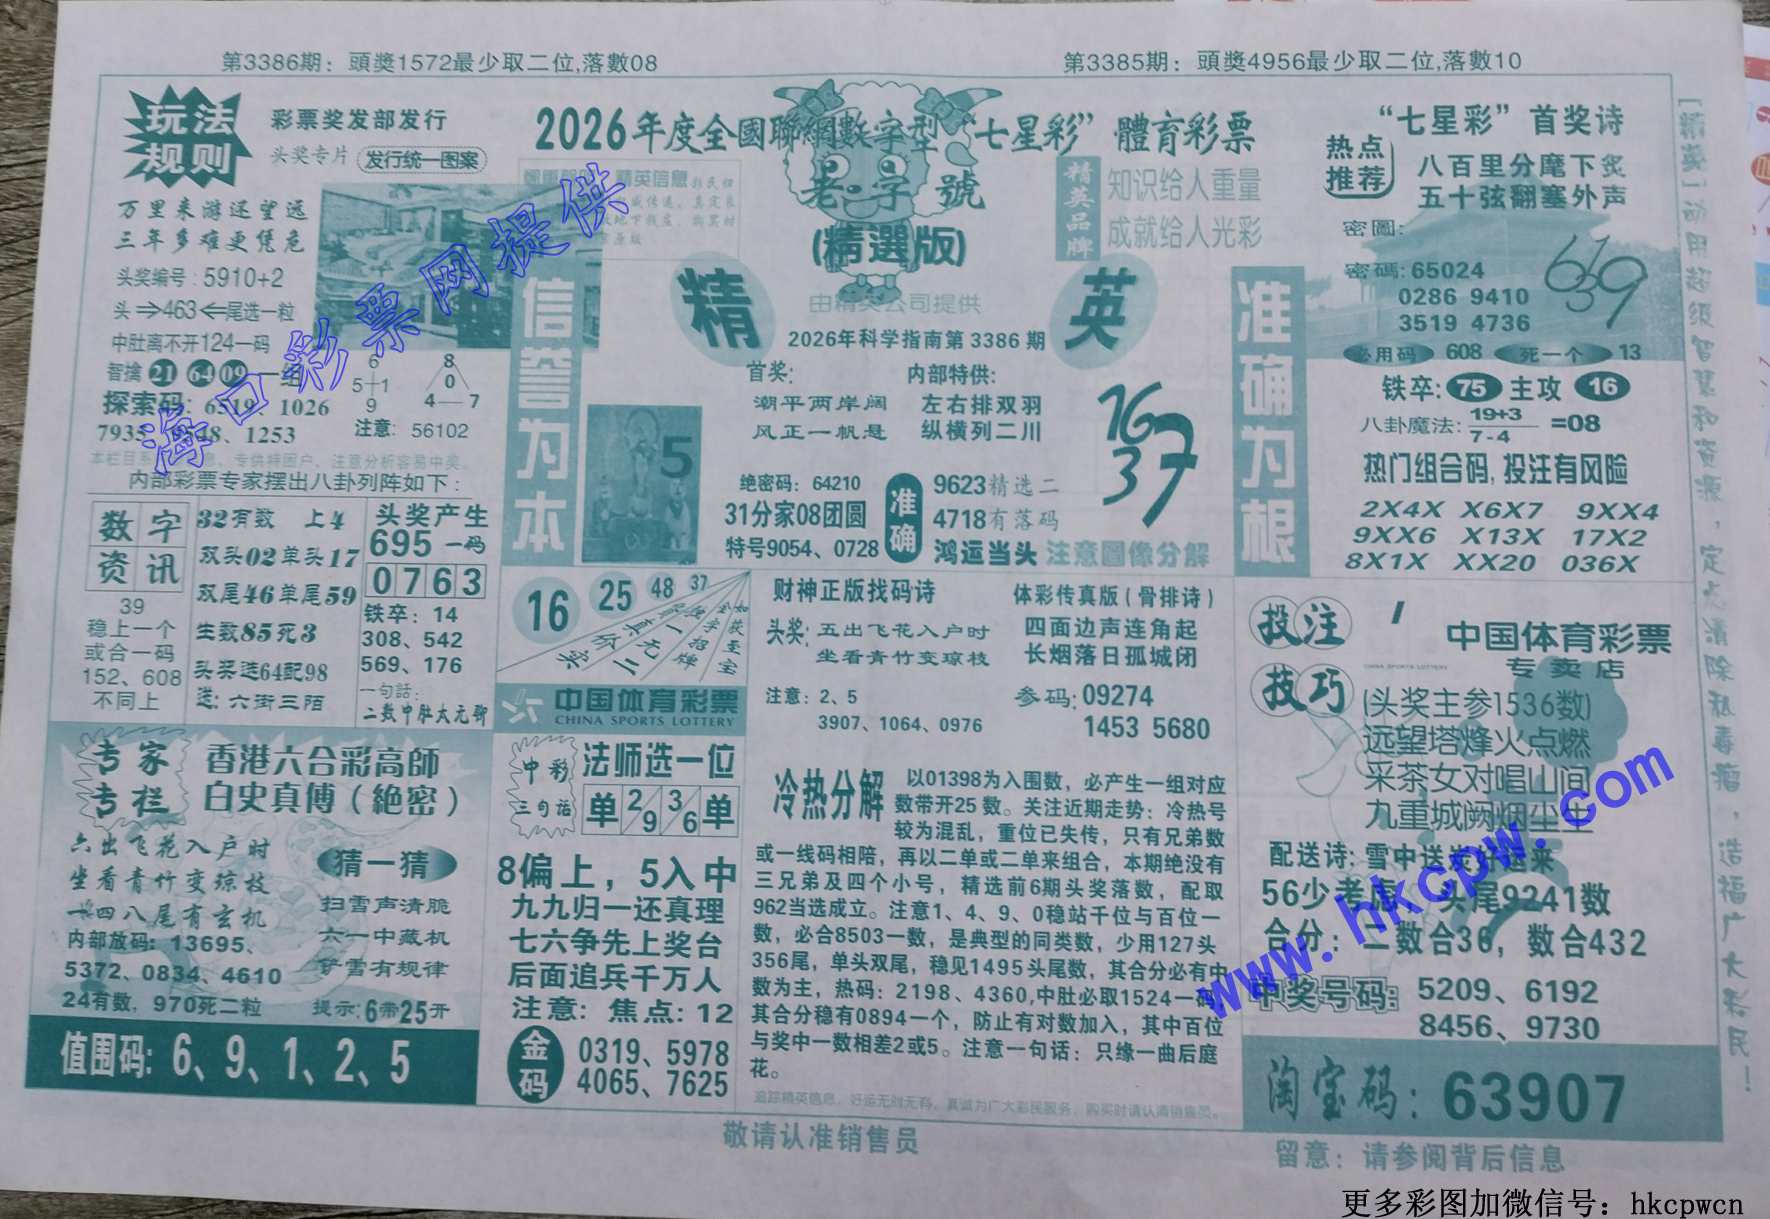 第3386期：頭獎1572最少取二位,落數08
第3385期：頭獎4956最少取二位,落數10
玩法
规则
彩票奖发部发行
头奖专片
发行统一图案
万里来游还望远
三年多难更凭危
头奖编号：5910+2
头⇒463⇐尾选一粒
中肚离不开124一码
智擒 21 64 09 一组
探索码：6519、1026
7935、9548、1253
6
5+1
9
8
0
4—7
注意：56102
内部彩票专家摆出八卦列阵如下：
数字
资讯
39
稳上一个
或合一码
152、608
不同上
32有数 上4
双头02单头17
双尾46单尾59
生数85死3
头奖选64配98
送：六街三陌
头奖产生
695一码
0763
铁卒：14
308、542
569、176
一句話：
二数中肚大元帥
专家
专栏
香港六合彩高師
白史真傅（絶密）
六出飞花入户时
坐看青竹变琼枝
一四八尾有玄机
内部放码：13695、
5372、0834、4610
24有数，970死二粒
猜一猜
扫雪声清脆
六一中藏机
铲雪有规律
提示:6带25开
值围码: 6、9、1、2、5
2026年度全國聯網數字型“七星彩”體育彩票
老字號
(精選版)
精英品牌
知识给人重量
成就给人光彩
信誉为本
精
英
由精英公司提供
2026年科学指南第3386期
首奖:
潮平两岸阔
风正一帆悬
内部特供:
左右排双羽
纵横列二川
16
37
37
5
绝密码：64210
31分家08团圆
特号9054、0728
准确
9623精选二
4718有落码
鸿运当头 注意圖像分解
准确为根
16 25 48 37
中国体育彩票
CHINA SPORTS LOTTERY
中彩
三句话
法师选一位
单 2/9 3/6 单
8偏上，5入中
九九归一还真理
七六争先上奖台
后面追兵千万人
注意：焦点：12
金码
0319、5978
4065、7625
财神正版找码诗
头奖：五出飞花入户时
坐看青竹变琼枝
注意：2、5
3907、1064、0976
体彩传真版（骨排诗）
四面边声连角起
长烟落日孤城闭
参码:09274
1453 5680
冷热分解
以01398为入围数，必产生一组对应
数带开25数。关注近期走势：冷热号
较为混乱，重位已失传，只有兄弟数
或一线码相陪，再以二单或二单来组合，本期绝没有
三兄弟及四个小号，精选前6期头奖落数，配取
962当选成立。注意1、4、9、0稳站千位与百位一
数，必合8503一数，是典型的同类数，少用127头
356尾，单头双尾，稳见1495头尾数，其合分必有中
数为主，热码：2198、4360,中肚必取1524一码，
其合分稳有0894一个，防止有对数加入，其中百位
与奖中一数相差2或5。注意一句话：只缘一曲后庭
花。
追踪精英信息，好运无时无存，真诚为广大彩民服务，购买时请认清销售员。
敬请认准销售员
“七星彩”首奖诗
热点
推荐
八百里分麾下炙
五十弦翻塞外声
密圖:
密碼:65024
0286 9410
3519 4736
639
3
必用码 608 死一个 13
铁卒: 75 主攻 16
八卦魔法: 19+3
7-4 =08
热门组合码,投注有风险
2X4X X6X7 9XX4
9XX6 X13X 17X2
8X1X XX20 036X
投注
技巧
中国体育彩票
CHINA SPORTS LOTTERY
专卖店
(头奖主参1536数)
远望塔烽火点燃
采茶女对唱山间
九重城阙烟尘生
配送诗: 雪中送炭好运来
56少考虑，头尾9241数
合分：二数合36，数合432
中奖号码: 5209、6192
8456、9730
淘宝码：63907
留意：请参阅背后信息
海口彩票网提供
www.hkcpw.com
更多彩图加微信号：hkcpwcn